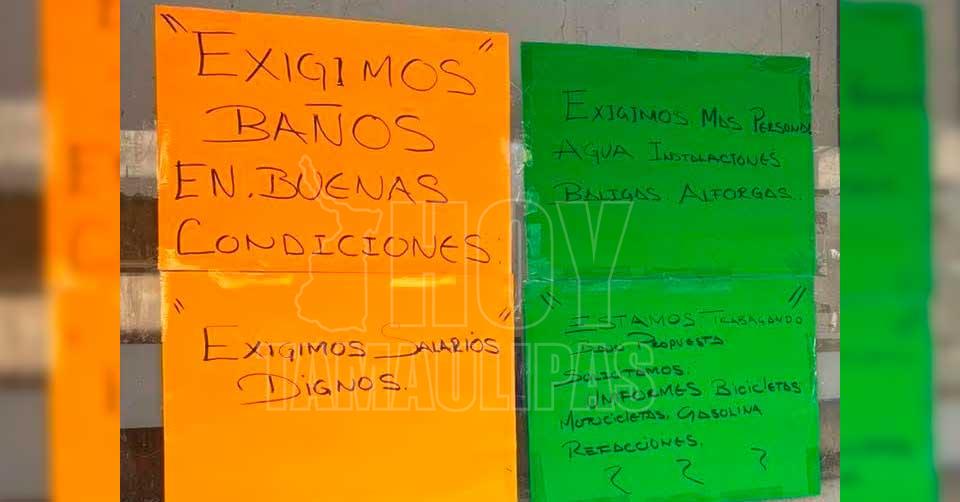 "EXIGIMOS"
BAÑOS
EN. BUENAS
CONDICIONES.
" "
EXIGIMOS SALARIOS
DIGNOS.
EXIGIMOS MAS PERSONAL
AGUA INSTALACIONES
BALIGAS ALFORGAS.
" "
ESTAMOS TRABAGANDO
BAJO PROPUESTA
SOLICITAMOS.
UNIFORMES BICICLETAS
MOTICICLETAS, GASOLINA
REFACCIONES.
HOY
TAMAULIPAS